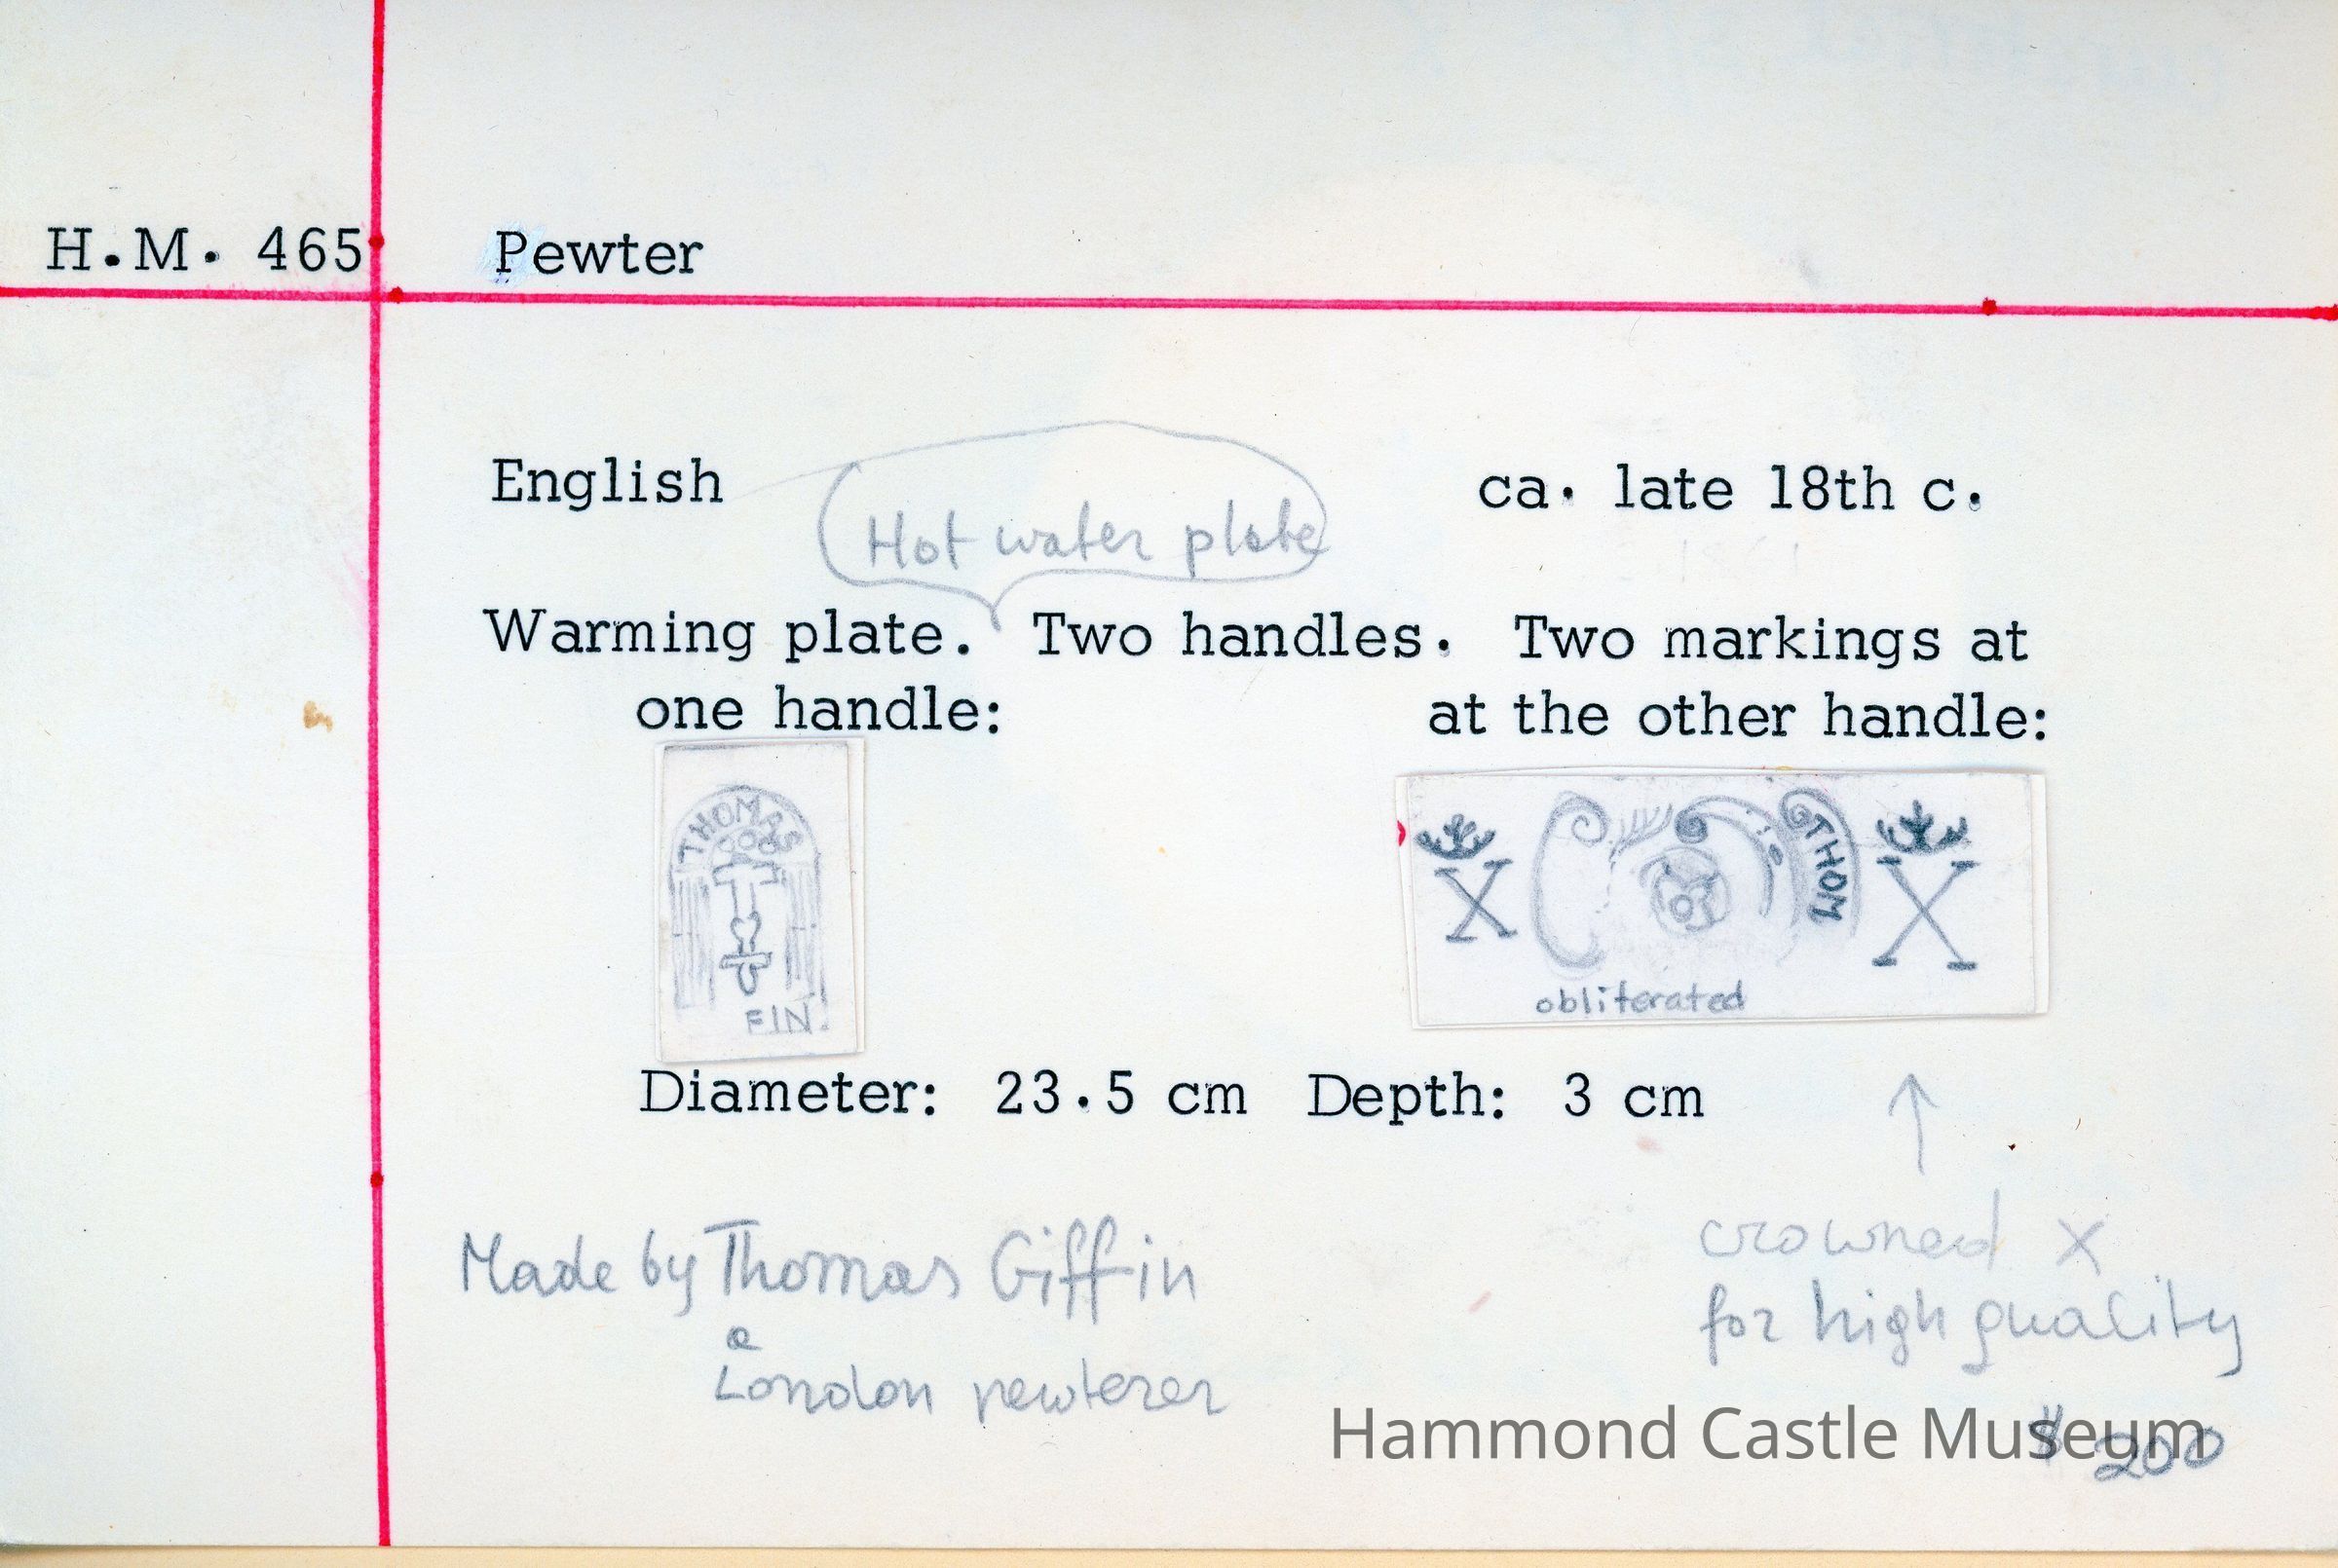 H.M. 465 Pewter
English ca. late 18th c.
Hot water plate
Warming plate. Two handles. Two markings at
one handle: at the other handle:
THOMAS
FIN.
X THOM X
obliterated
Diameter: 23.5 cm Depth: 3 cm
Made by Thomas Giffin
a
London pewterer
crowned X
for high quality
$200
Hammond Castle Museum